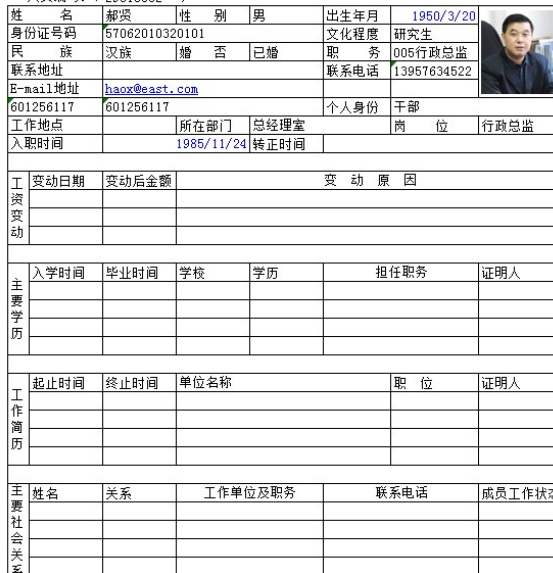 姓 名 郝贤 性 别 男 出生年月 1950/3/20
身份证号码 57062010320101 文化程度 研究生
民 族 汉族 婚 否 已婚 职 务 005行政总监
联系地址 联系电话 13957634522
E-mail地址 haox@east.com
601256117 601256117 个人身份 干部
工作地点 所在部门 总经理室 岗 位 行政总监
入职时间 1985/11/24 转正时间
工资变动 变动日期 变动后金额 变 动 原 因
主要学历 入学时间 毕业时间 学校 学历 担任职务 证明人
工作简历 起止时间 终止时间 单位名称 职 位 证明人
主要社会关系 姓名 关系 工作单位及职务 联系电话 成员工作状态